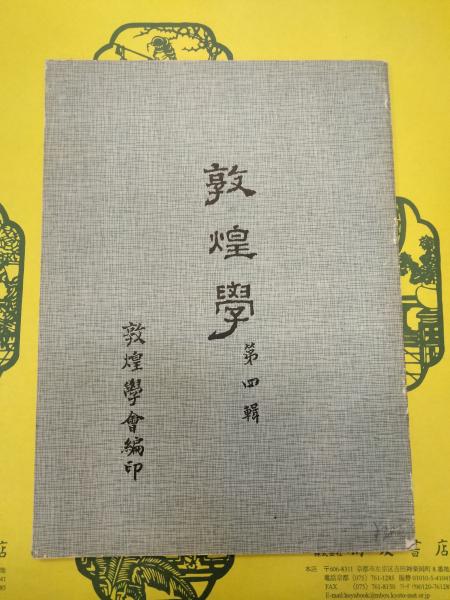 敦煌學
第四輯
敦煌學會編印
店
書店
本店 〒606-8311 京都市左京区吉田神楽岡町8番地
電話京都 (075) 761-1285 振替 01010-5-1041
FAX (075) 761-8150
E-mail:hoyubook@mbox.kyoto-inet.or.jp